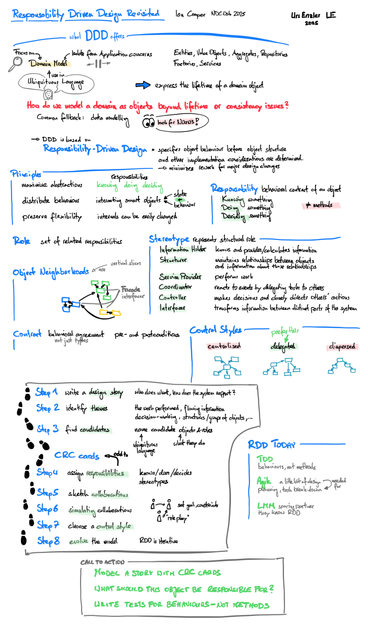 Responsibility Driven Design Revisited
Isa Cooper NDC Oslo 2025
Urs Enzler LE
2025
what DDD offers
Focus on
Domain Model
isolate from Application concerns
Ubiquitous Language
Entities, Value Objects, Aggregates, Repositories
Factories, Services
express the lifetime of a domain object
How do we model a domain as objects beyond lifetime or consistency issues?
Common fallback: data modelling
look for Nouns?
DDD is based on
Responsibility-Driven Design
specifies object behaviour before object structure
and other implementation considerations are determined.
minimizes rework for major design changes
Principles
responsibilities
maximize abstractions
knowing doing deciding
distribute behaviour
interacting smart objects
state
behaviour
preserve flexibility
internals can be easily changed
Responsibility behavioral context of an object
Knowing something
Doing something
Deciding something
≠ methods
Role set of related responsibilities
Stereotype represents structural role
Information Holder knows and provides/calculates information
Structurer maintains relationships between objects
and information about those relationships
Service Provider performs work
Coordinator reacts to events by delegating tasks to others
Controller makes decisions and closely directs others' actions
Interfacer transforms information between distinct parts of the system
Object Neighborhoods
vertical slices
Facade
interfacer
Contract behavioral agreement
not just types
pre- and postconditions
Control Styles
centralized
delegated
dispersed
Step 1 write a design story
who does what, how does the system support?
Step 2 identify themes
the work performed, flowing information
Step 3 find candidates
name candidate objects & roles
ubiquitous
language
what they do
CRC cards
Step 4 assign responsibilities
knows/does/decides
stereotypes
Step 5 sketch collaborations
Step 6 simulating collaborations
"role play"
Step 7 choose a control style
Step 8 evolve the model
RDD is iterative
RDD Today
TDD
behaviours, not methods
Agile a little bit of design
planning, task breakdown
needed
for
LLM sparring partner
they know RDD
CALL TO ACTION
Model a story with CRC cards
What should this object be responsible for?
Write tests for behaviours - not methods